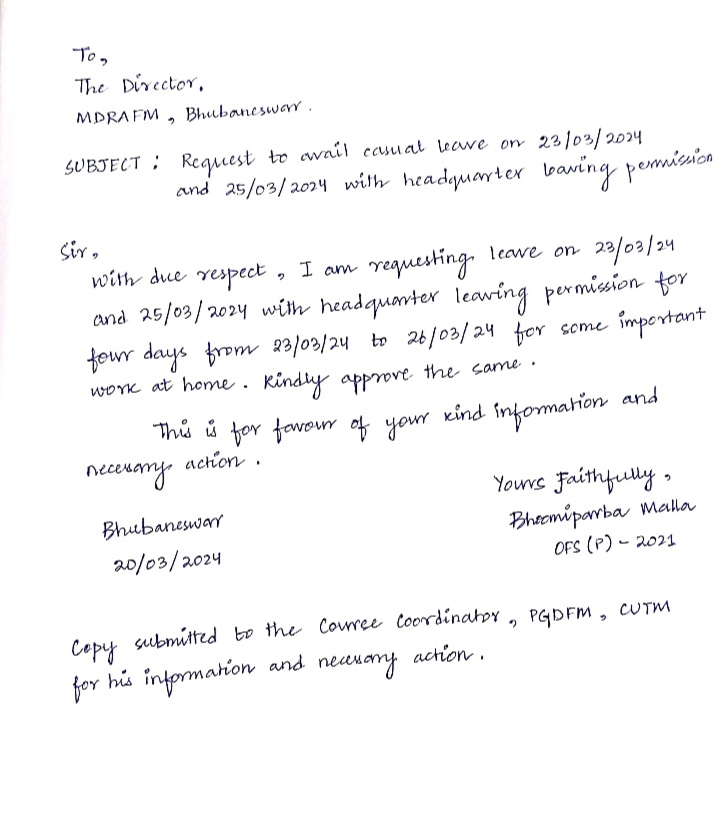 To,
The Director,
MDRAFM, Bhubaneswar.
SUBJECT : Request to avail casual leave on 23/03/2024
and 25/03/2024 with headquarter leaving permission
Sir,
With due respect, I am requesting leave on 23/03/24
and 25/03/2024 with headquarter leaving permission for
four days from 23/03/24 to 26/03/24 for some important
work at home. Kindly approve the same.
This is for favour of your kind information and
necessary action.
Yours Faithfully,
Bhoomiparba Malla
OFS (P) - 2021
Bhubaneswar
20/03/2024
Copy submitted to the Course Coordinator, PGDFM, CUTM
for his information and necessary action.